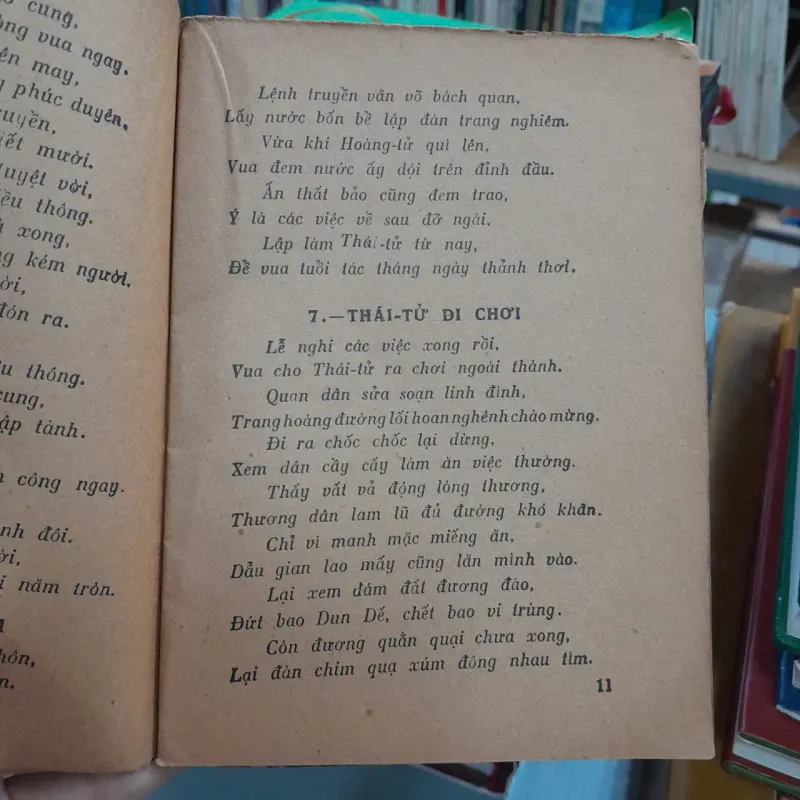 cung,
vua ngay.
may,
phúc duyên.
mười.
tuyệt vời,
thông.
xong,
kém người.
đón ra.
thông.
cung,
tành.
công ngay.
đôi.
năm tròn.
Lệnh truyền văn võ bách quan,
Lấy nước bốn bề lập đàn trang nghiêm.
Vừa khi Hoàng-tử quì lên,
Vua đem nước ấy dội trên đỉnh đầu.
Ấn thất bảo cũng đem trao,
Ý là các việc về sau đỡ ngài.
Lập làm Thái-tử từ nay,
Đề vua tuổi tác tháng ngày thảnh thơi.
7.—THÁI-TỬ ĐI CHƠI
Lễ nghi các việc xong rồi,
Vua cho Thái-tử ra chơi ngoài thành.
Quan dân sửa soạn linh đình,
Trang hoàng đường lối hoan nghênh chào mừng.
Đi ra chốc chốc lại dừng,
Xem dân cầy cấy làm ăn việc thường.
Thấy vất vả động lòng thương,
Thương dân lam lũ đủ đường khó khăn.
Chỉ vì manh mặc miếng ăn,
Dẫu gian lao mấy cũng lăn mình vào.
Lại xem dám đất đương đào,
Đứt bao Dun Dế, chết bao vi trùng.
Còn đương quằn quại chưa xong,
Lại đàn chim quạ xúm đóng nhau tìm.
11